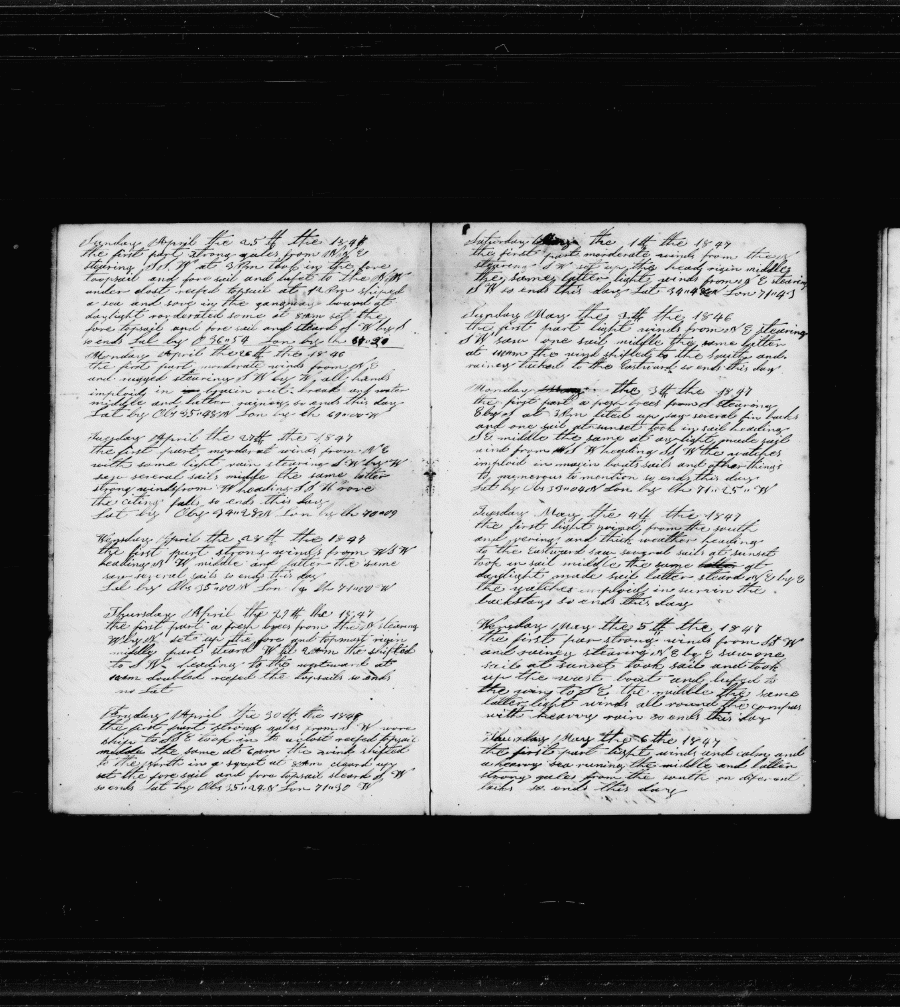 Sunday April the 25th the 1847
the first part strong gales from N E
stearing S S W at 3 Pm took in the fore
topsail and fore sail and
under clost reefed topsail at Pm shiped
a sea and stove in the gangway board at
daylight moderated some at 8am set the
fore topsail and fore sail and steard S W by S
so ends Lat by O 36=54 Lon by ch
Monday April the 26th the 1846
the first part moderate winds from N E
and ruged stearing S W by W all hands
imployed in oil
middle and latter rainey so ends this day
Lat by Obs 35=48 N Lon by ch 69=00 W
Tuesday April the 27th the 1847
the first part moderat winds from N E
with some light rain stearing S W by W
saw several sails middle the same latter
strong winds from W heading S S W
the so ends this day
Lat by Obs 34=28 N Lon by ch 70=09
Wensday April the 28th the 1847
the first part strong winds from W S W
heading N W middle and latter the same
saw several sails so ends this day
Lat by Obs 35=00 N Lon by ch 71=00 W
Thursday April the 29th the 1847
the first part a fresh brees from the N stearing
W by N set up the fore and topmast rigin
middle part steard W at 2am the shifted
to S W heading to the westward at
10am doubled reefed the topsails so ends
no Lat
Fryday April the 30th the 1846
the first part strong gales from S W wore
ship to S E took in to a clost reefed topsail
middle the same at 6am the winds shifted
to the north in a squal at 8am cleard up
set the fore sail and fore topsail steard S W
so ends Lat by Obs 35=29 N Lon 71=30 W
Saturday the 1th the 1847
the first part moderate winds from the N
stearing S W set up the head rigin middle
the same latter light winds from N E stearing
S W so ends this day Lat 34=48 N Lon 71=43
Sunday May the 2th the 1846
the first part light winds from N E stearing
S W saw one sail middle the same latter
at 10am the wind shifted to the south and
rainey tacked to the Eastward so ends this day
Monday the 3th the 1847
the first part a fresh brees from S stearing
E by S at 3 Pm saw several fin backs
and one sail at sunset took in sail heading
S E middle the same at daylight made sail
wind from W S W heading S W the watches
imployd in boats sails and other things
to numerous to mention so ends this day
Lat by Obs Lon by ch 71=25 W
Tuesday May the 4th the 1847
the first light wind from the south
and and thick weather heading
to the Eastward saw several sails at sunset
took in sail middle the same at
daylight made sail latter steard N E by E
the watches employed in the
backstays so ends this day
Wensday May the 5th the 1847
the first par strong winds from S W
and rainey stearing N E by E saw one
sail at sunset took sail and took
up the wast boat and lufed to
the going to S E the middle the same
latter light winds all round the compas
with heavey rain so ends this day
Thursday May the 6th the 1847
the first part light winds and calm and
a heavey sea runing the middle and latter
strong gales from the south on diferant
tacks so ends this day